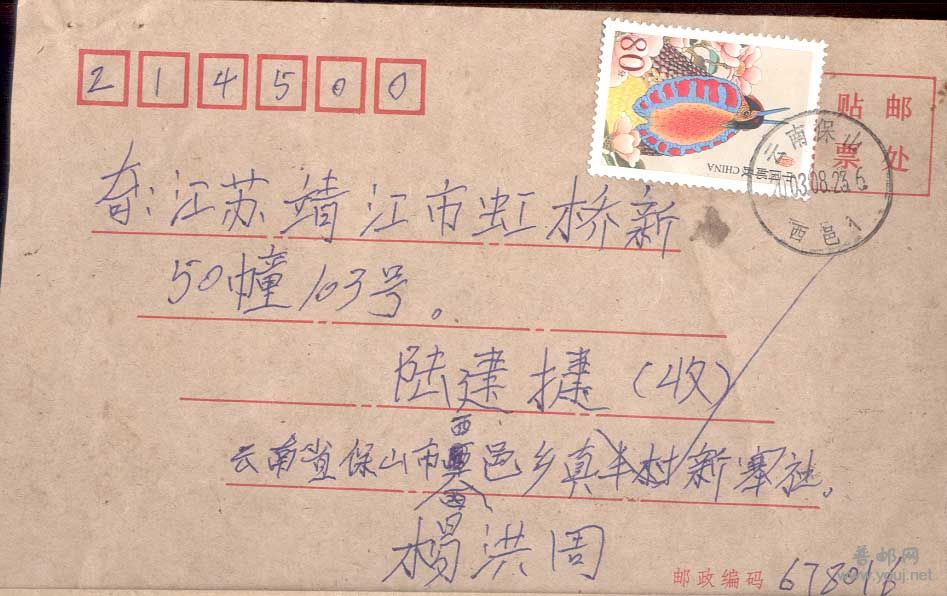 214500
80分
中国邮政 CHINA
贴邮
票处
云南保山
2003.08.23.6
西邑 1
寄:江苏靖江市虹桥新
50幢103号。
陆建捷(收)
西
云南省保山市邑乡真半村新寨社。
西
杨洪周
邮政编码 678016
普邮网
www.youj.net